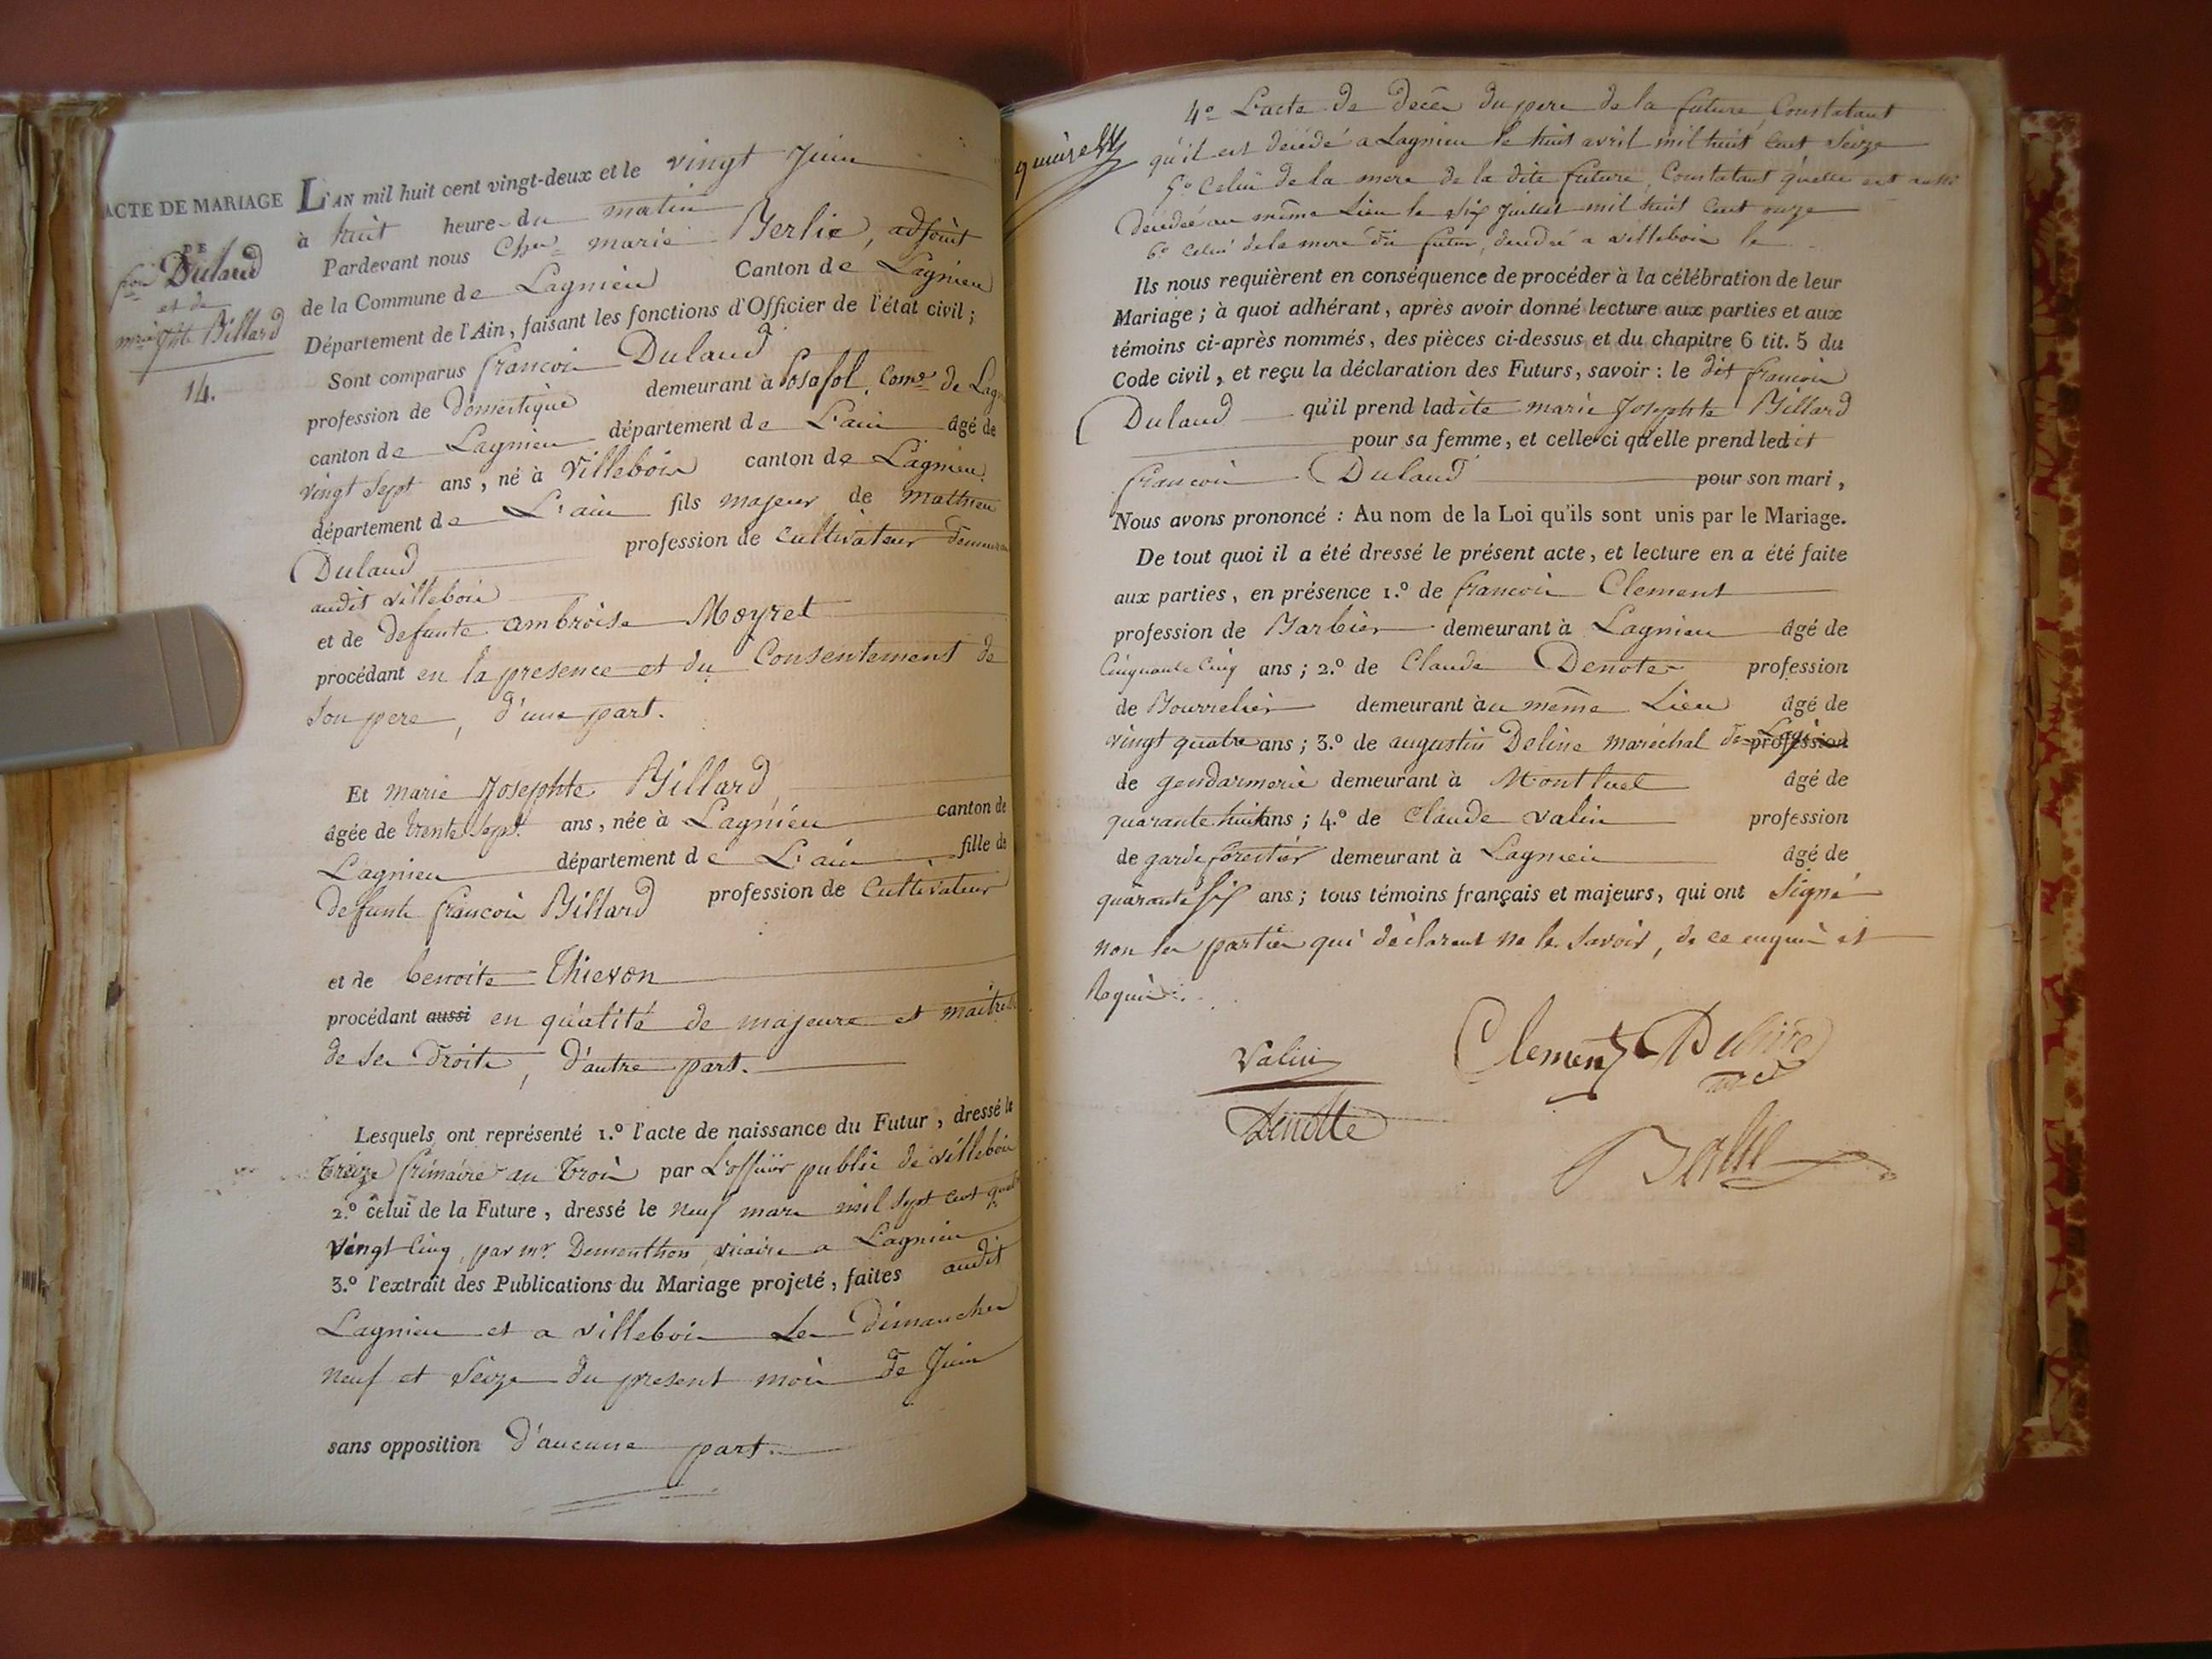 ACTE DE MARIAGE
DE
fois Dulaud
et de
mrie Jphte Billard
14.
L'AN mil huit cent vingt-deux et le vingt Juin
à huit heure du matin
Pardevant nous marie Berlie, adjoint
de la Commune de Lagnieu Canton de Lagnieu
Département de l'Ain, faisant les fonctions d'Officier de l'état civil;
Sont comparus francois Dulaud
profession de domestique demeurant à Posafol, Comne de Lagn
canton de Lagnieu département de L'ain âgé de
vingt sept ans, né à Villebois canton de Lagnieu
département de L'ain fils majeur de mathieu
Dulaud profession de cultivateur demeurant
audit villebois
et de defunte ambroise Moyret
procédant en la presence et du Consentement de
son pere, d'une part.
Et marie Josephte Billard
âgée de trente sept ans, née à Lagnieu canton de
Lagnieu département de L'ain fille de
defunt francois Billard profession de Cultivateur
et de benoite Thievon
procédant aussi en qualité de majeure et maitresse
de ses droits, d'autre part.
Lesquels ont représenté 1.º l'acte de naissance du Futur, dressé le
treize frimaire an trois par L'officier public de villebois
2.º celui de la Future, dressé le neuf mars mil sept cent quatre
vingt cinq, par mr Demonthon vicaire a Lagnieu
3.º l'extrait des Publications du Mariage projeté, faites audit
Lagnieu et a villebois les dimanches
neuf et seize du present mois de Juin
sans opposition d'aucune part.
4º L'acte de décès du pere de la future, Constatant
qu'il est décédé a Lagnieu le huit avril mil huit cent seize
5º Celui de la mere de la dite future, Constatant qu'elle est aussi
décédée au même Lieu le six Juillet mil huit cent onze
6º celui de la mere du futur, décédée a villebois le
Ils nous requièrent en conséquence de procéder à la célébration de leur
Mariage; à quoi adhérant, après avoir donné lecture aux parties et aux
témoins ci-après nommés, des pièces ci-dessus et du chapitre 6 tit. 5 du
Code civil, et reçu la déclaration des Futurs, savoir: le dit francois
Dulaud qu'il prend ladite marie Josephte Billard
pour sa femme, et celle-ci qu'elle prend ledit
francois Dulaud pour son mari,
Nous avons prononcé: Au nom de la Loi qu'ils sont unis par le Mariage.
De tout quoi il a été dressé le présent acte, et lecture en a été faite
aux parties, en présence 1.º de francois Clement
profession de Barbier demeurant à Lagnieu âgé de
Cinquante Cinq ans; 2.º de Claude Denoter profession
de Bourrelier demeurant au même Lieu âgé de
vingt quatre ans; 3.º de augustin Deline maréchal de Logis profession
de gendarmerie demeurant à Montluel âgé de
quarante huit ans; 4.º de Claude valin profession
de garde forestier demeurant à Lagnieu âgé de
quarante six ans; tous témoins français et majeurs, qui ont signé
non les parties qui déclarent ne le savoir, de ce enquis et
Requis.
Valin
Clement
Denotte